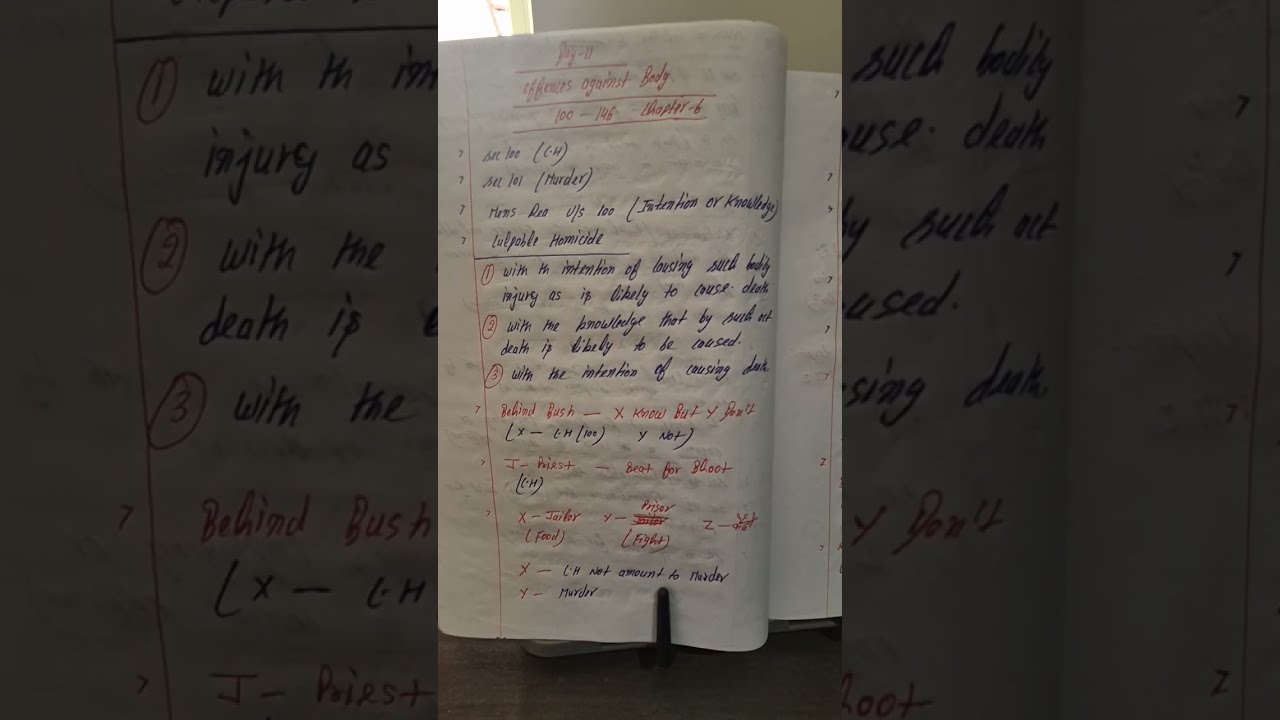 Day-11
offences against Body
100 - 146 Chapter-6
sec 100 (C.H)
sec 101 (Murder)
Mens Rea U/s 100 (Intention or Knowledge)
Culpable Homicide
① with th intention of causing such bodily
injury as is likely to cause death
② with the knowledge that by such act
death is likely to be caused.
③ with the intention of causing death.
Behind Bush — X Know But Y Don't
(X — C.H (100) Y Not)
J - Priest — Beat for Bhoot
(C.H)
X - Jailor Y - Prisor Z -
(Food) (Fight)
X — C.H Not amount to Murder
Y - Murder